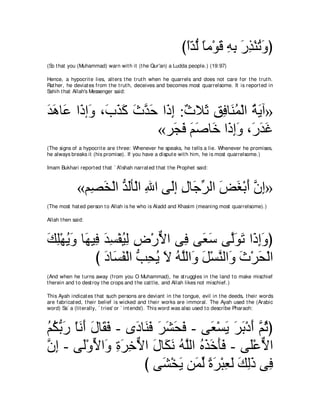 (وَتُنْذِرَ بِهِ قَوْماً لُّدّاً)
(So that you (Muhammad) warn with it (the Qur'an) a Ludda people.) (19:97)
Hence, a hypocrite lies, alters the truth when he quarrels and does not care for the truth. Rather, he deviates from the truth, deceives and becomes most quarrelsome. It is reported in Sahih that Allah's Messenger said:
«آيَةُ الْمُنَافِقِ ثَلَاثٌ: إِذَا حَدَّثَ كَذَبَ، وَإِذَا عَاهَدَ غَدَرَ، وَإِذَا خَاصَمَ فَجَر»
(The signs of a hypocrite are three: Whenever he speaks, he tells a lie. Whenever he promises, he always breaks it (his promise). If you have a dispute with him, he is most quarrelsome.)
Imam Bukhari reported that `A'ishah narrated that the Prophet said:
«إِنَّ أَبْغَضَ الرِّجَالِ إِلَى اللهِ الْأَلَدُّ الْخَصِم»
(The most hated person to Allah is he who is Aladd and Khasim (meaning most quarrelsome).)
Allah then said:
(وَإِذَا تَوَلَّى سَعَى فِي الأَرْضِ لِيُفْسِدَ فِيهَا وَيُهْلِكَ الْحَرْثَ وَالنَّسْلَ وَاللَّهُ لاَ يُحِبُّ الْفَسَادَ )
(And when he turns away (from you O Muhammad), he struggles in the land to make mischief therein and to destroy the crops and the cattle, and Allah likes not mischief.)
This Ayah indicates that such persons are deviant in the tongue, evil in the deeds, their words are fabricated, their belief is wicked and their works are immoral. The Ayah used the (Arabic word) Sa`a (literally, `tries' or `intends'). This word was also used to describe Pharaoh:
(ثُمَّ أَدْبَرَ يَسْعَى - فَحَشَرَ فَنَادَى - فَقَالَ أَنَاْ رَبُّكُمُ الاٌّعْلَى - فَأَخَذَهُ اللَّهُ نَكَالَ الاٌّخِرَةِ وَالاٍّوْلَى - إِنَّ فِى ذَلِكَ لَعِبْرَةً لِّمَن يَخْشَى )